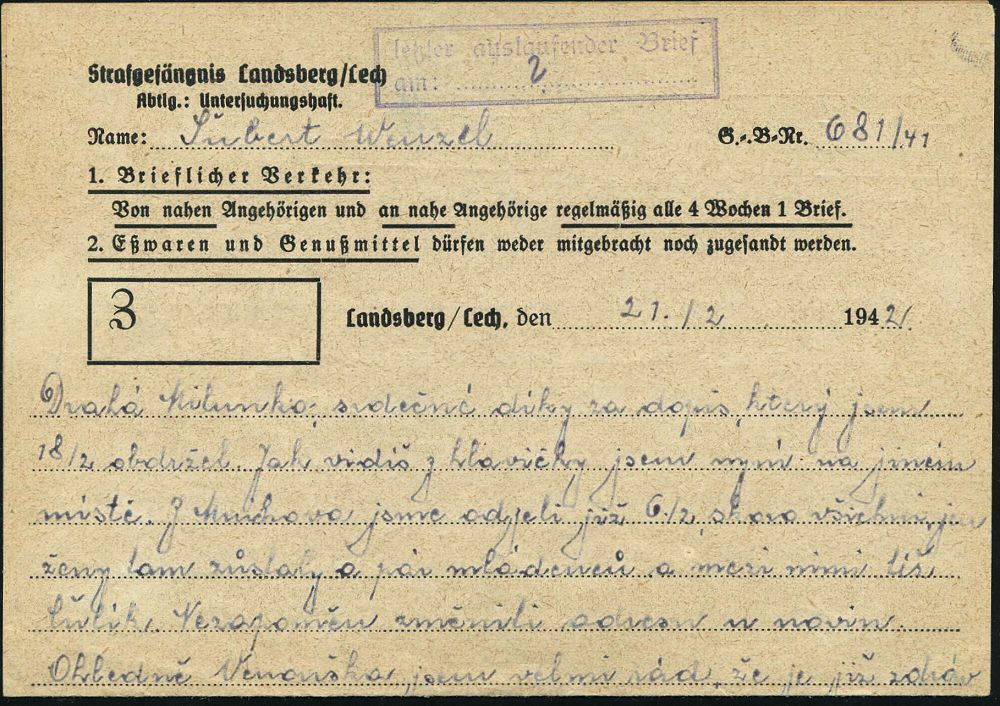 letzter auslaufender Brief
am: 2
Strafgefängnis Landsberg/Lech
Abtlg.: Untersuchungshaft.
Name: Šubert Wenzel G.-B-Nr. 681/41
1. Brieflicher Verkehr:
Von nahen Angehörigen und an nahe Angehörige regelmäßig alle 4 Wochen 1 Brief.
2. Eßwaren und Genußmittel dürfen weder mitgebracht noch zugesandt werden.
3
Landsberg/Lech, den 21./2 1942
Drahá Milunko, srdečné díky za dopis, který jsem
18/2 obdržel. Jak vidíš z hlavičky jsem nyní na jiném
místě. Z Mnichova jsme odjeli již 6/2, skoro všichni, jen
ženy tam zůstaly a pár mládenců a mezi nimi též
Nezapomeň změniti adresu u novin.
Ohledně Venouška jsem velmi rád, že je již zdráv